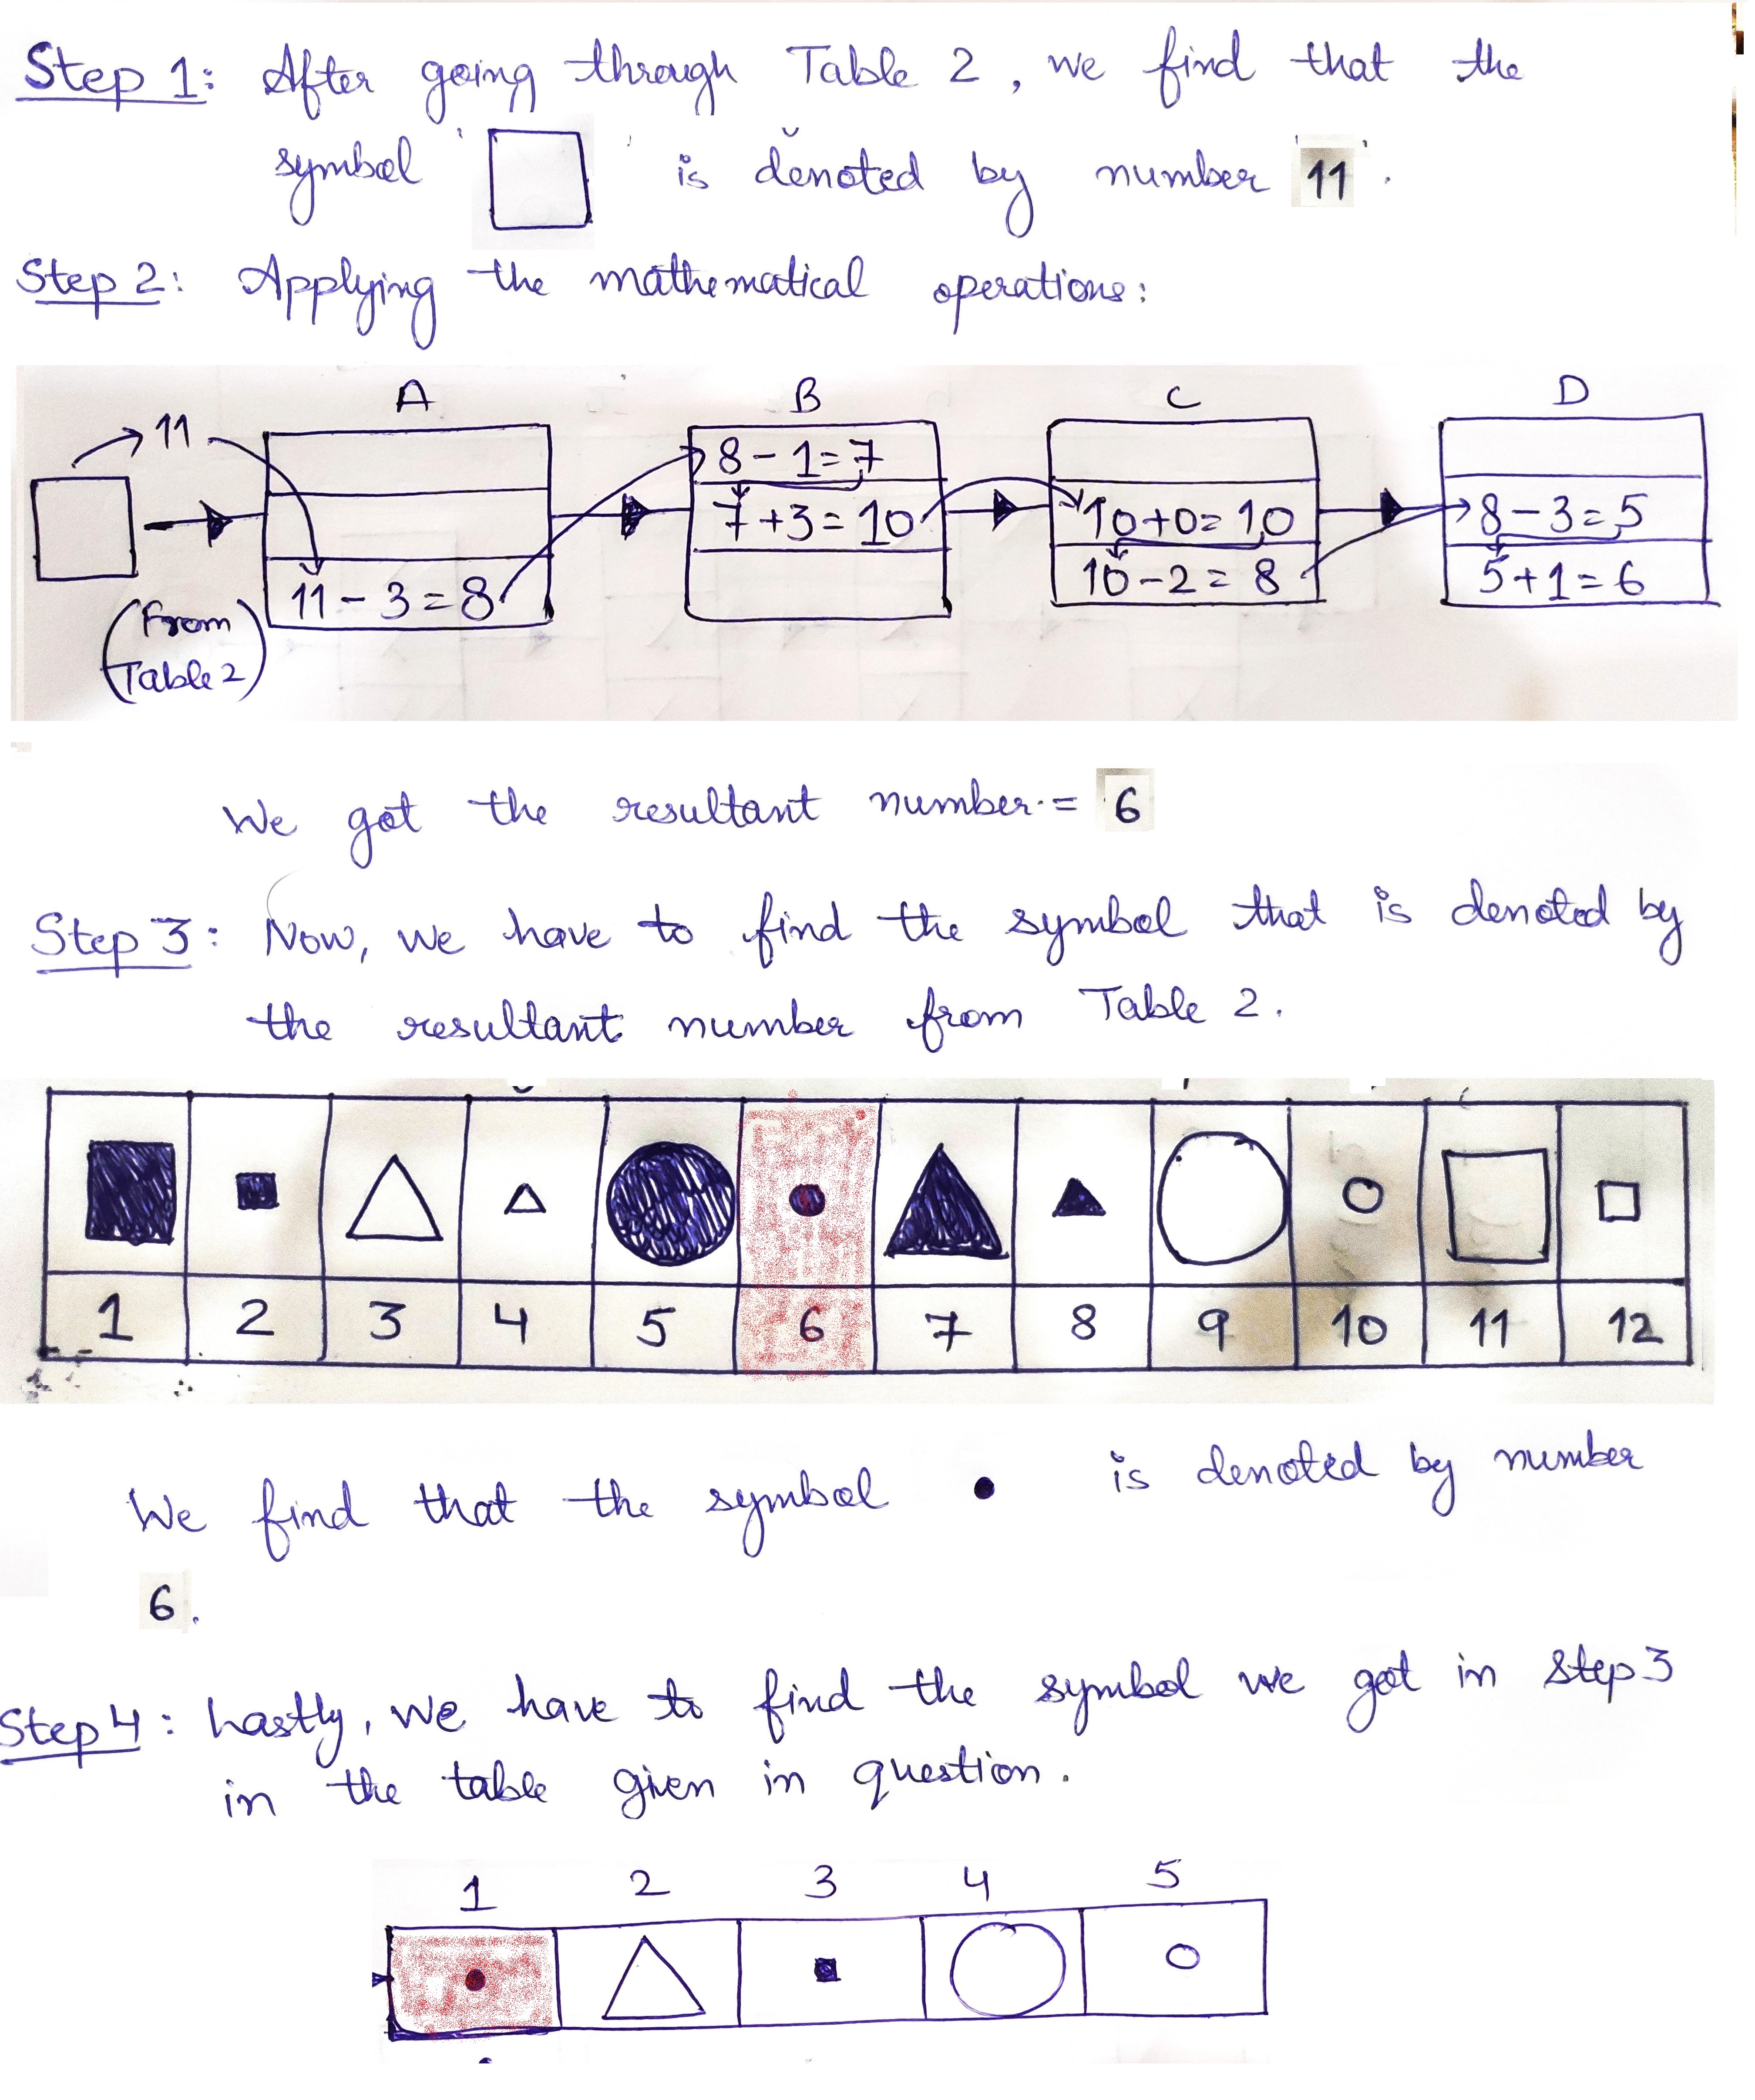 Step 1: After going through Table 2, we find that the
symbol ' ' is denoted by number '11'.
Step 2: Applying the mathematical operations:
A B C D
11
8 - 1 = 7
7 + 3 = 10 10 + 0 = 10 8 - 3 = 5
11 - 3 = 8 10 - 2 = 8 5 + 1 = 6
(From
Table 2)
We got the resultant number = 6
Step 3: Now, we have to find the symbol that is denoted by
the resultant number from Table 2.
1 2 3 4 5 6 7 8 9 10 11 12
We find that the symbol is denoted by number
6.
Step 4: Lastly, we have to find the symbol we got in step 3
in the table given in question.
1 2 3 4 5